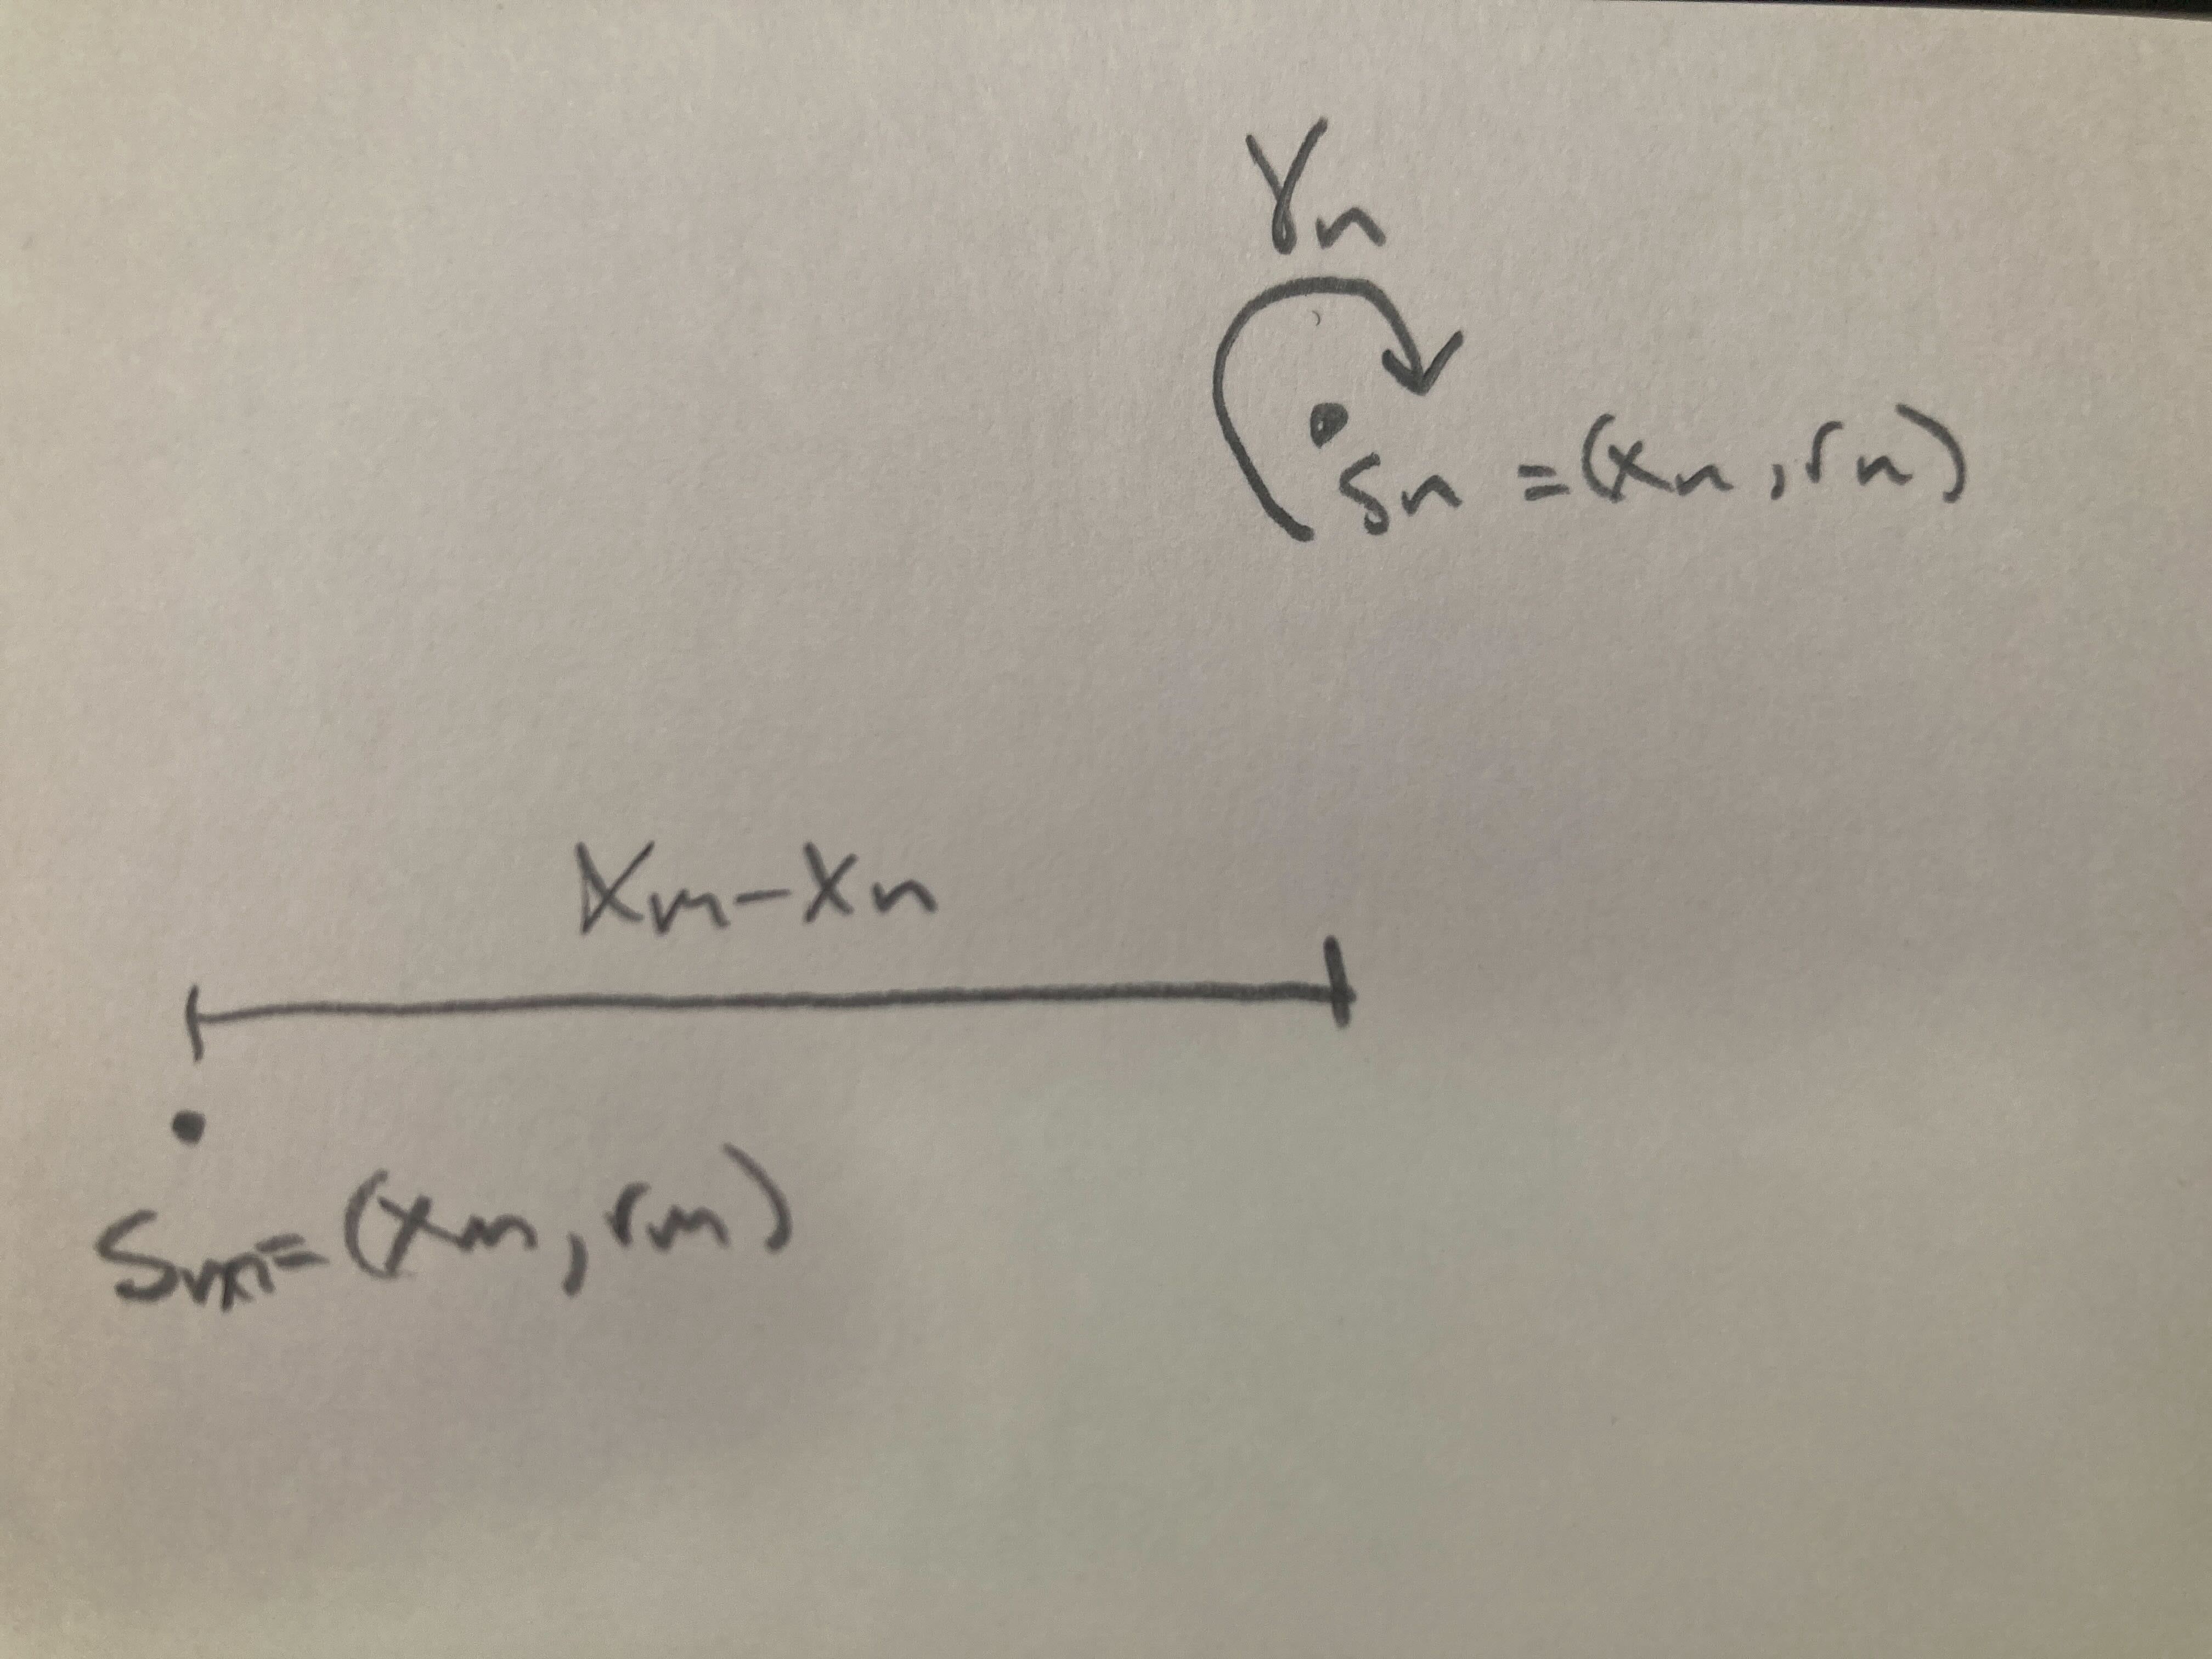 γn
Sn = (xn, rn)
Xm-Xn
Sm= (xm, rm)